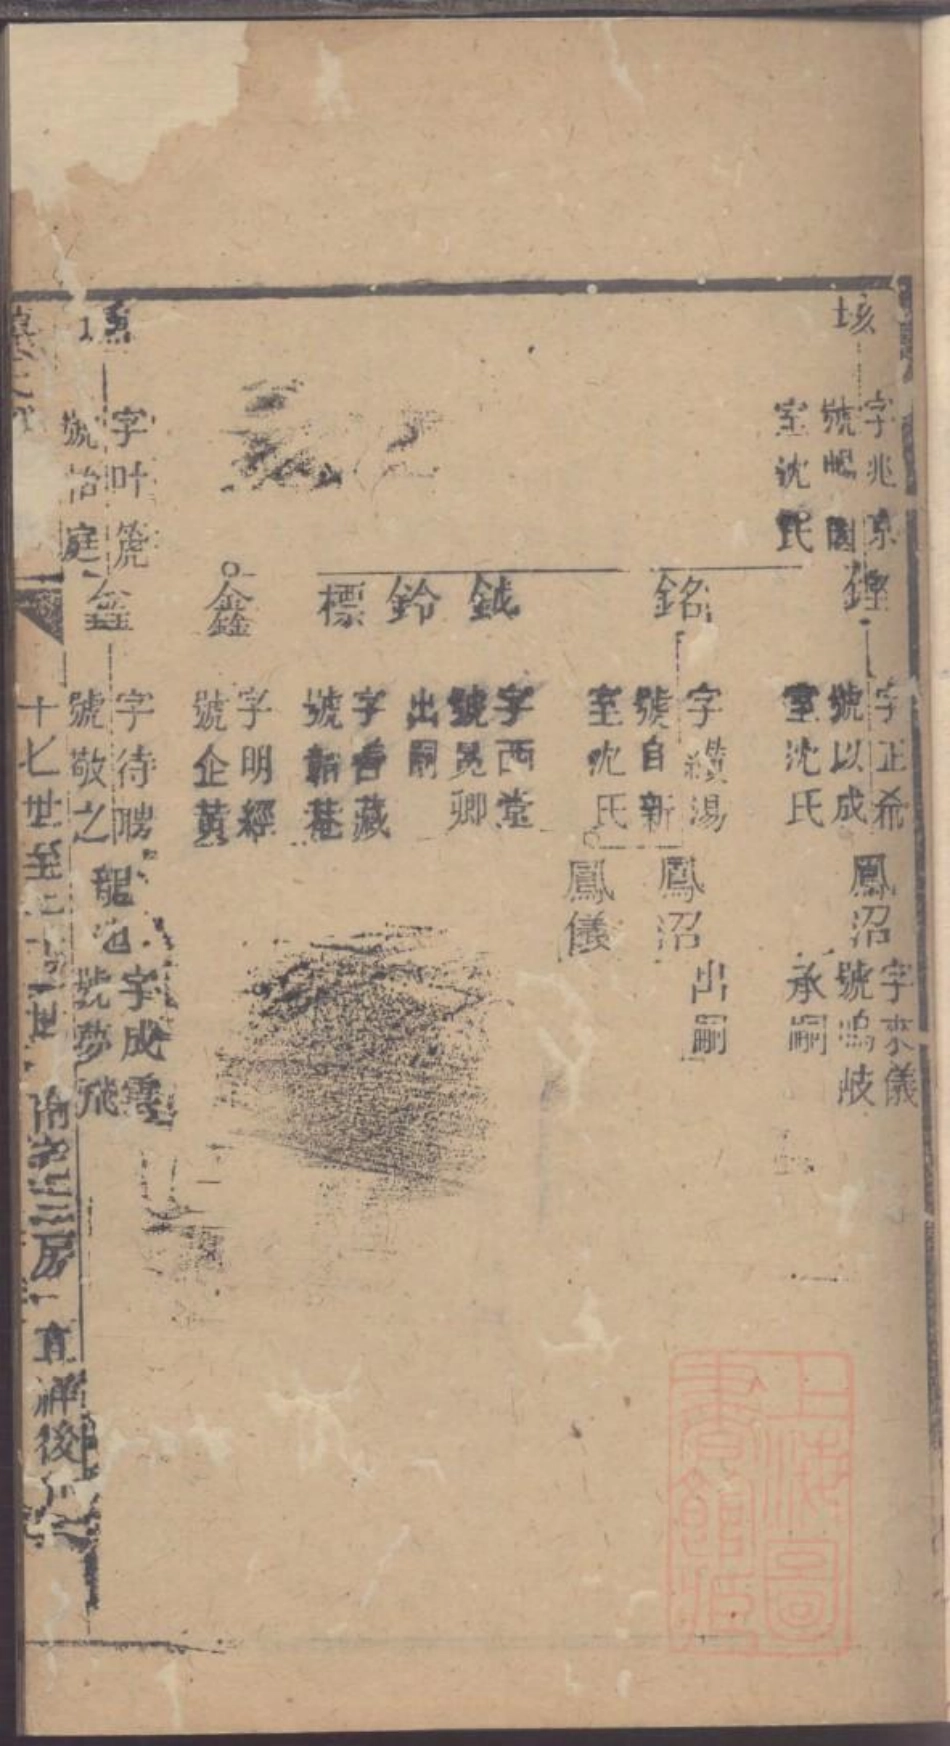 垓
字兆京
號㠶園
室沈氏
鏗
字正希
號以成
室沈氏
鳳沼
字來儀
號鳴岐
承嗣
銘
字纘湯
號自新
室沈氏
鳳沼
出嗣
鳳儀
鉞
字西堂
號冕卿
鈴
出嗣
標
字善藏
號韜菴
鑫
字明經
號企黃
字叶箎
號怡庭
字待聘
號敬之
龍池
字成雲
號夢飛
十七世至二十世
房
直祥後
上海圖書館藏